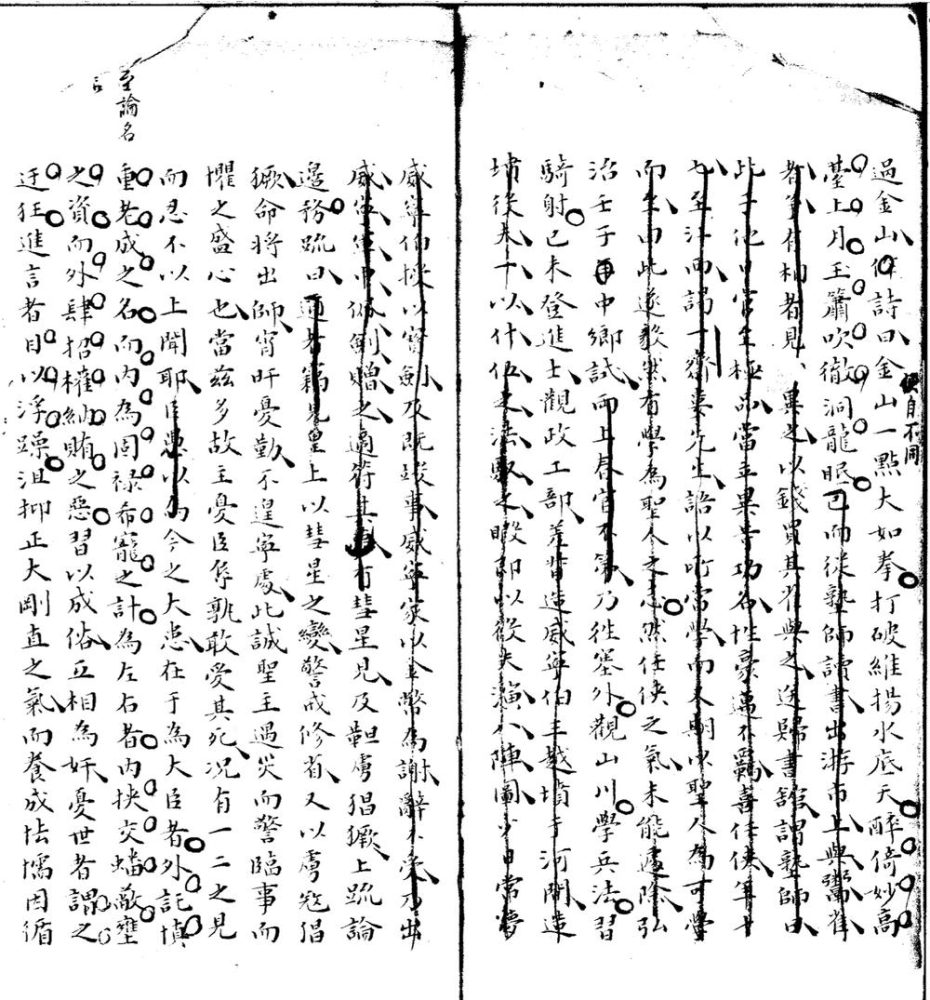 過金山作詩曰金山一點大如拳打破維揚水底天醉倚妙高
臺上月玉簫吹徹洞龍眠已而從塾師讀書出游市上與鬻雀
者爭有相者見異之以錢買其雀與之送歸書舘謂塾師曰
此子他日官至極品當立異等功名性豪邁不羈喜任俠年十
七至江西謁一齋婁先生語以所當學而又期以聖人為可學
而至由此遂毅然有學為聖人之志然任俠之氣未能遽除弘
治壬子中鄉試而上春官不第乃徃塞外觀山川學兵法習
騎射己未登進士觀政工部差督造威寧伯王越墳于河間造
墳役夫十以什伍之法馭之暇即以役夫演八陣圖少日常夢
威寧伯授以寶劍及既竣事威寧家以金幣為謝辭不受乃出
威寧軍中佩劍贈之適符其有彗星見及韃虜猖獗上疏論
邊務疏曰邇者竊見皇上以彗星之變警戒修省又以虜寇猖
獗命將出師宵旰憂勤不遑寧處此誠聖主遇災而警臨事而
懼之盛心也當茲多故主憂臣辱孰敢愛其死况有一二之見
而忍不以上聞耶臣愚以為今之大患在于為大臣者外託慎
重老成之名而内為固禄希寵之計為左右者内挾交蟠蔽壅
之資而外肆招權納賄之惡習以成俗互相為奸憂世者謂之
迂狂進言者目以浮躁沮抑正大剛直之氣而養成怯懦因循
便自不同
至論名
言